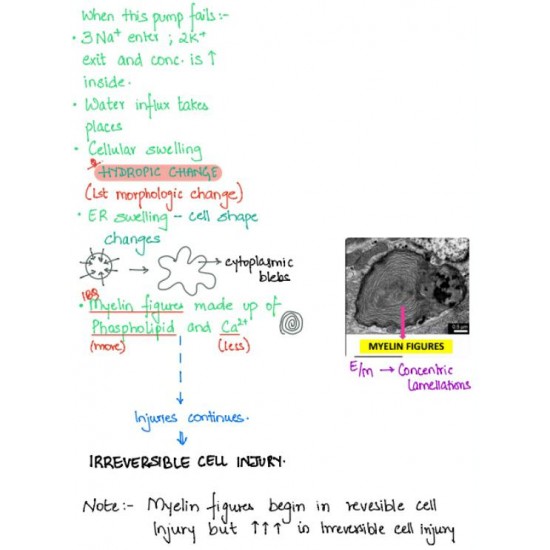 When this pump fails:-
• 3 Na+ enter ; 2K+
exit and conc. is ↑
inside.
• Water influx takes
places
• Cellular swelling
* HYDROPIC CHANGE
(1st morphologic change)
• ER swelling - cell shape
changes
→ cytoplasmic
blebs
IBQ
• Myelin figures made up of
Phospholipid and Ca2+
(more) (less)
0.5 µm
MYELIN FIGURES
E/m → Concentric
Lamellations
Injuries continues.
IRREVERSIBLE CELL INJURY.
Note:- Myelin figures begin in revesible cell
Injury but ↑↑↑ in Irreversible cell injury